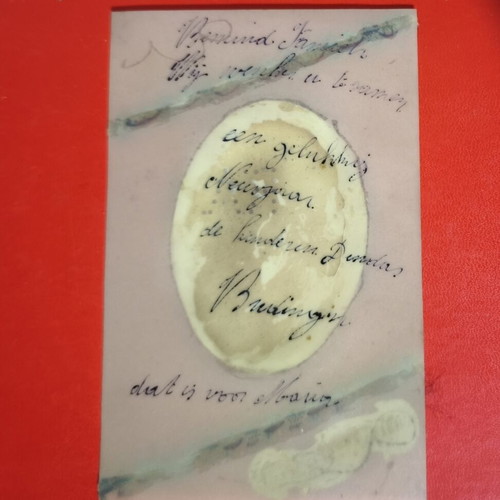 Bemind Famiele
Wij wenhe u tesamen
een gelukkig
Nieuwjaar
de kinderen Dendas
Budingen
dat is voor Maria